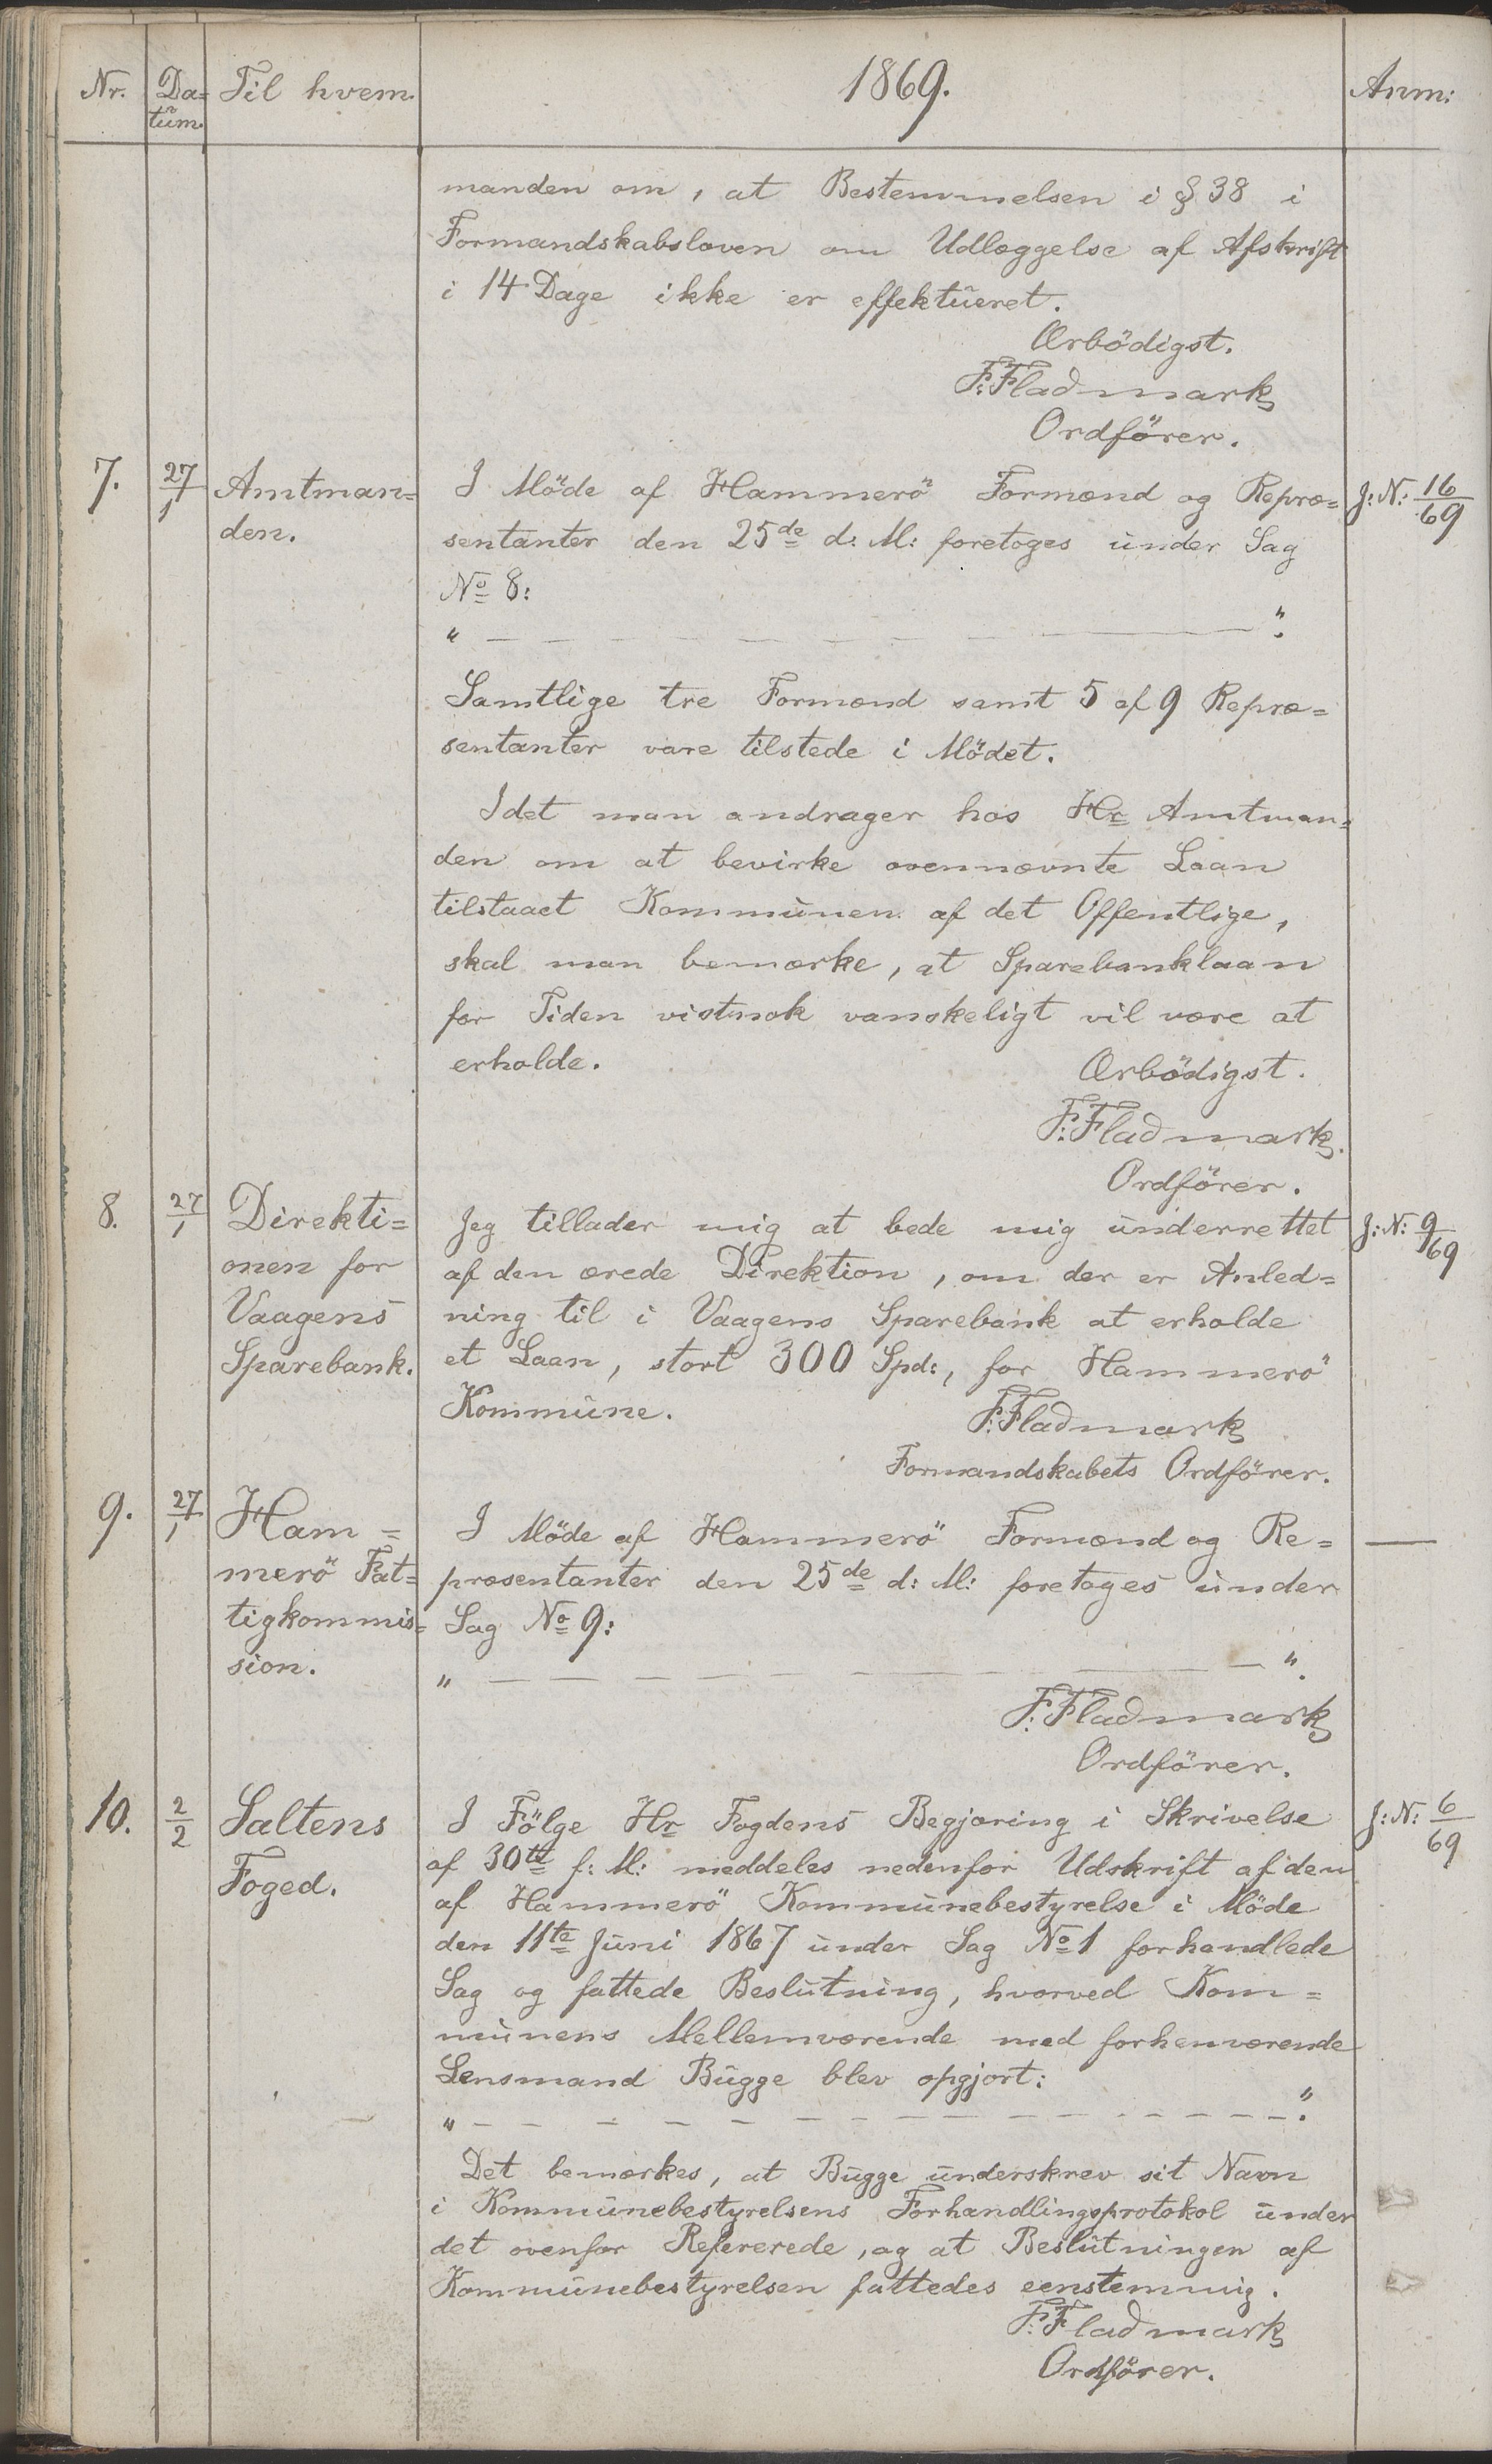 Nr. Da= Til hvem. 1869. Anm:
tum.
manden om, at Bestemmelsen i § 38 i
Formandskabsloven om Udlæggelse af Afskrift
i 14 Dage ikke er effektueret.
Ærbödigst.
F: Fladmark
Ordförer.
7. 27/1 Amtman= I Möde af Hammerö Formænd og Repræ= J: N: 16/69
den. sentanter den 25de d: M: foretoges under Sag
No 8:
" — — — — — — — — — — — ".
Samtlige tre Formænd samt 5 af 9 Repræ=
sentanter vare tilstede i Mödet.
Idet man andrager hos Hr Amtman=
den om at bevirke ovennævnte Laan
tilstaaet Kommunen af det Offentlige,
skal man bemærke, at Sparebanklaan
for Tiden vistnok vanskeligt vil være at
erholde. Ærbödigst.
F: Fladmark.
Ordförer.
8. 27/1 Direkti= Jeg tillader mig at bede mig underrettet J: N: 9/69
onen for af den ærede Direktion, om der er Anled=
Vaagens ning til i Vaagens Sparebank at erholde
Sparebank. et Laan, stort 300 Spd:, for Hammerö
Kommune. F: Fladmark
Formandskabets Ordförer.
9. 27/1 Ham= I Möde af Hammerö Formænd og Re= —
merö Fat= præsentanter den 25de d: M: foretoges under
tigkommis= Sag No 9:
sion. " — — — — — — — — — — — ".
F: Fladmark
Ordförer.
10. 2/2 Saltens I Fölge Hr Fogdens Begjæring i Skrivelse J: N: 6/69
Foged. af 30te f: M: meddeles nedenfor Udskrift af den
af Hammerö Kommunebestyrelse i Möde
den 11te Juni 1867 under Sag No 1 forhandlede
Sag og fattede Beslutning, hvorved Kom=
munens Mellemværende med forhenværende
Lensmand Bugge blev opgjort:
" — — — — — — — — — — — — — ".
Det bemærkes, at Bugge underskrev sit Navn
i Kommunebestyrelsens Forhandlingsprotokol under
det ovenfor Refererede, og at Beslutningen af
Kommunebestyrelsen fattedes eenstemmig.
F: Fladmark
Ordförer.